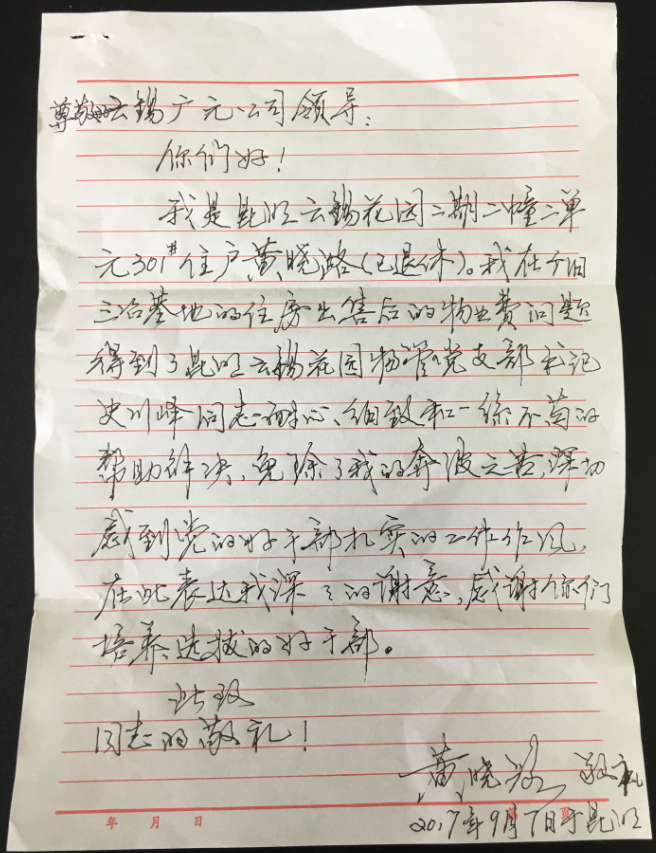 尊敬的云锡广元公司领导：
你们好！
我是昆明云锡花园二期二幢二单
元301#住户黄晓路(已退休)。我在个旧
三冶基地的住房出售后的物业费问题
得到了昆明云锡花园物管党支部书记
史川峰同志耐心、细致和一丝不苟的
帮助解决，免除了我的奔波之苦，深切
感到党的好干部扎实的工作作风，
在此表达我深深的谢意，感谢你们
培养选拔的好干部。
此致
同志的敬礼！
黄晓路 敬礼
2017年9月7日于昆明
年 月 日